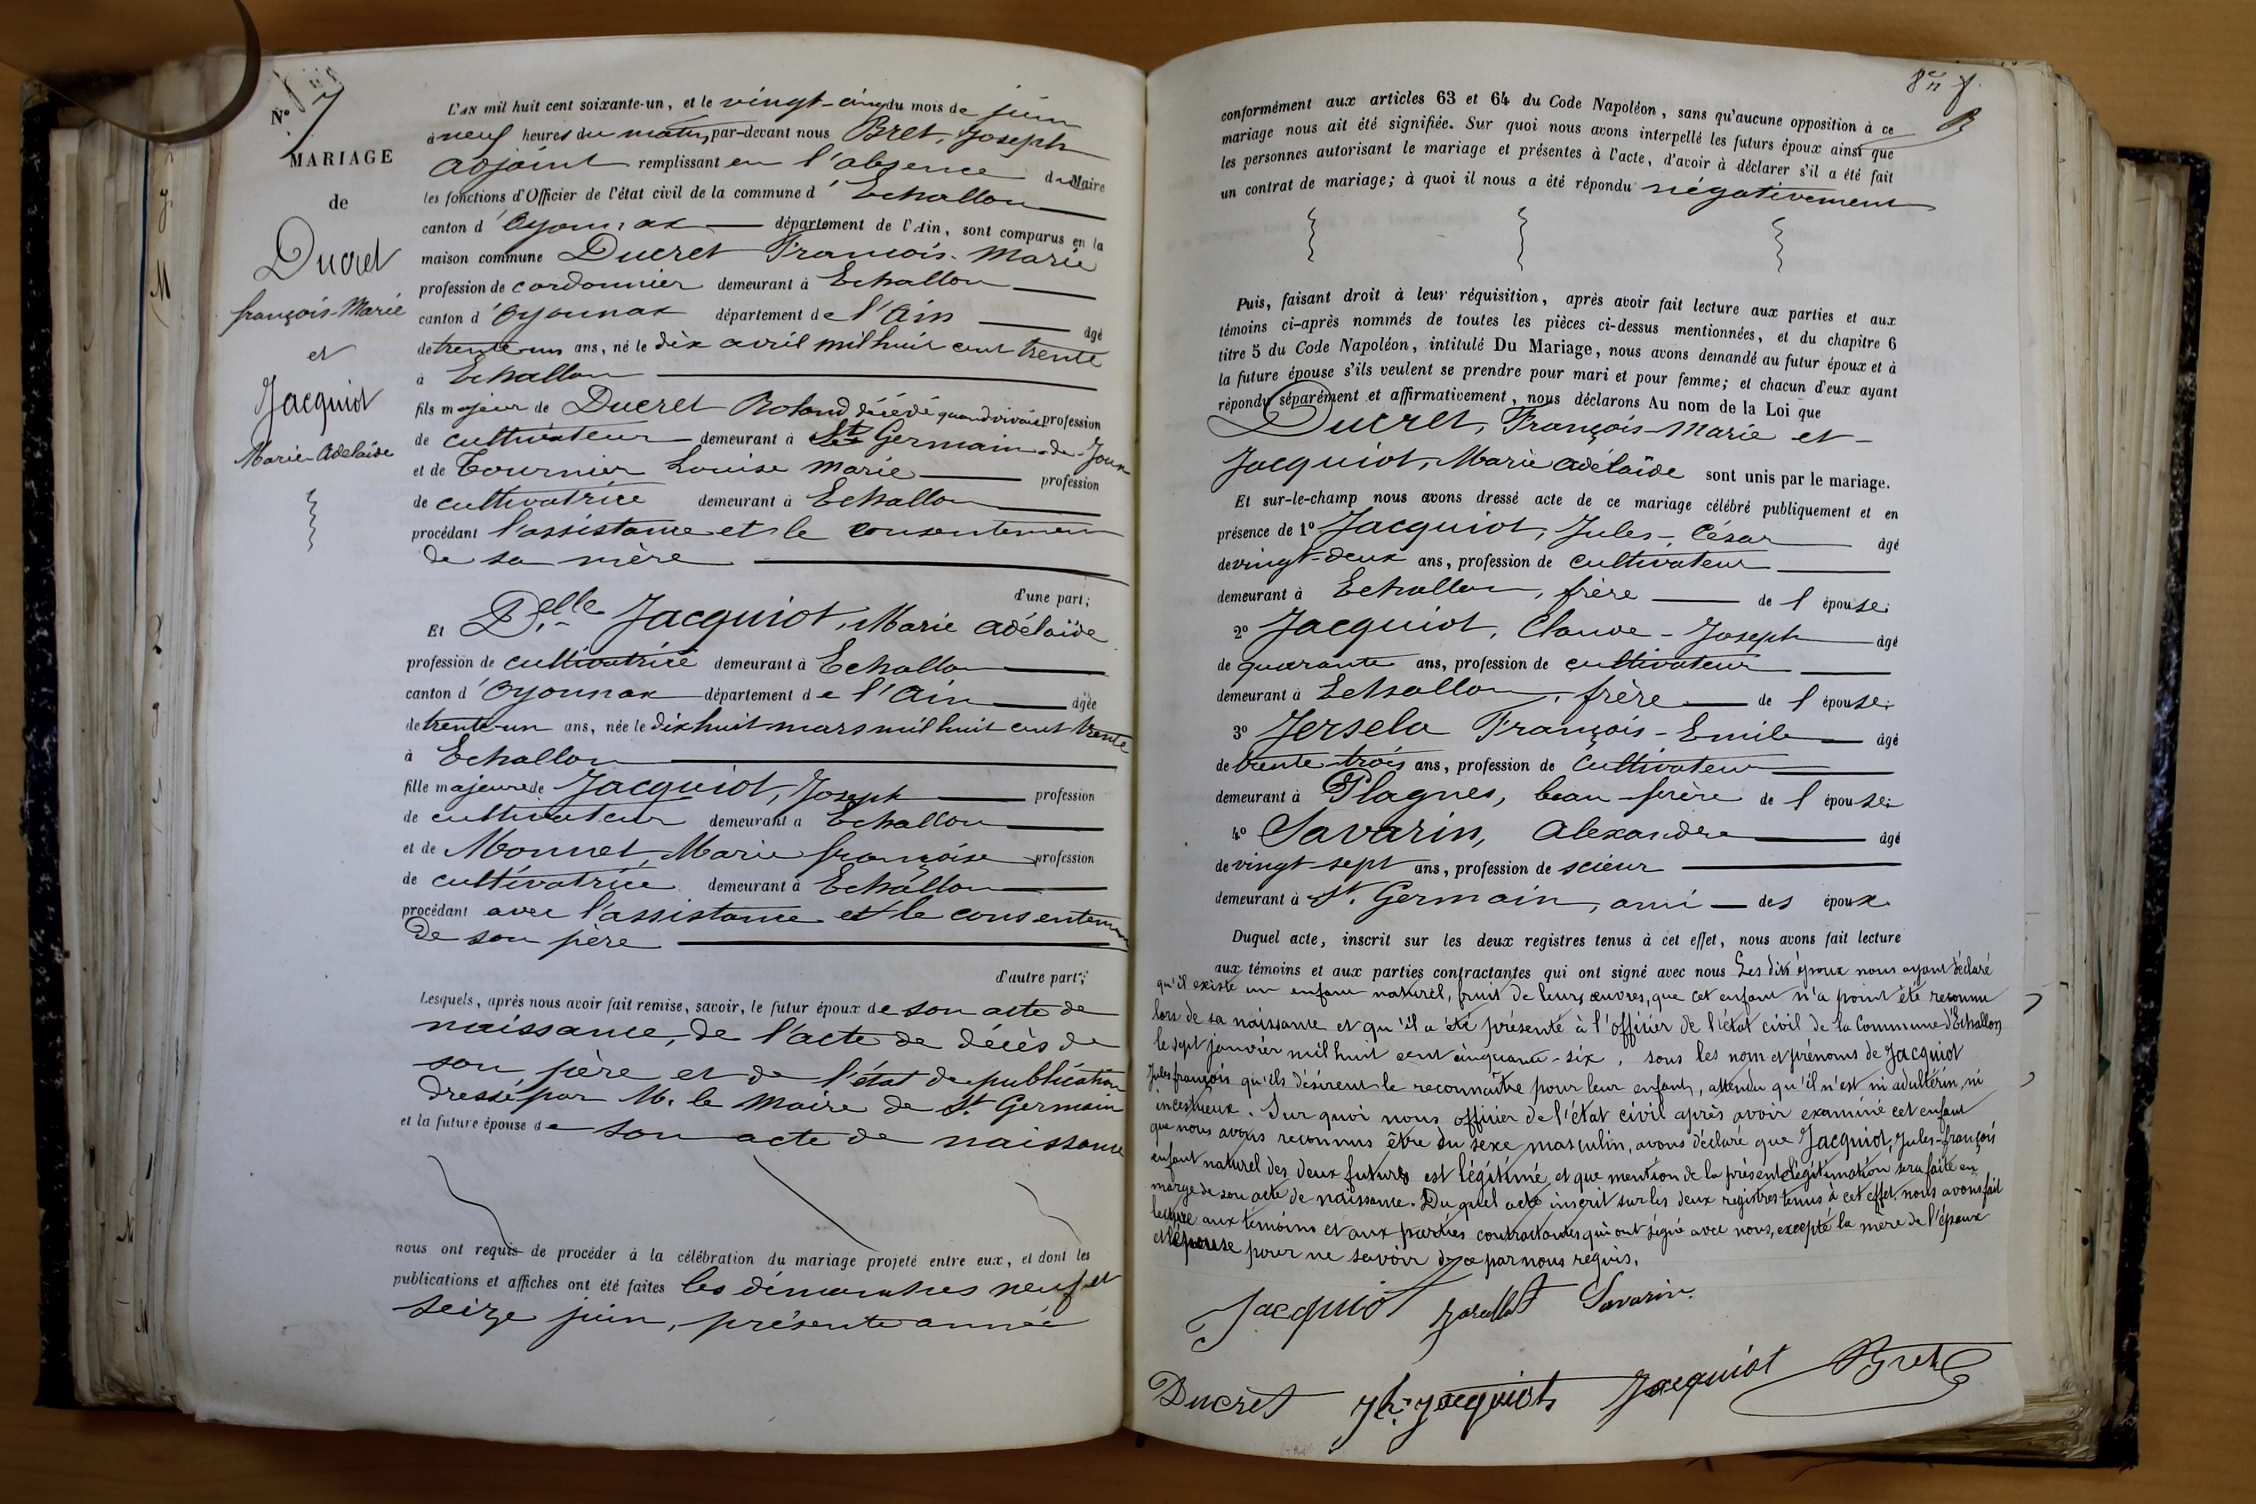 N° 7
MARIAGE
de
Ducret
françois-Marie
et
Jacquiot
Marie-Adélaïde
L'AN mil huit cent soixante-un, et le vingt-cinq du mois de juin
à neuf heures du matin, par-devant nous Bret, Joseph
adjoint remplissant en l'absence du Maire
les fonctions d'Officier de l'état civil de la commune d'Echallon
canton d'Oyonnax département de l'Ain, sont comparus en la
maison commune Ducret François-Marie
profession de cordonnier demeurant à Echallon
canton d'Oyonnax département de l'Ain âgé
de trente-un ans, né le dix avril mil huit cent trente
à Echallon
fils majeur de Ducret Roland décédé quand vivait profession
de cultivateur demeurant à St Germain-de-Joux
et de Tournier Louise Marie profession
de cultivatrice demeurant à Echallon
procédant l'assistance et le consentement
de sa mère
d'une part;
Et Delle Jacquiot, Marie adélaïde
profession de cultivatrice demeurant à Echallon
canton d'Oyonnax département de l'Ain âgée
de trente-un ans, née le dixhuit mars mil huit cent trente
à Echallon
fille majeure de Jacquiot, Joseph profession
de cultivateur demeurant à Echallon
et de Monnet, Marie françoise profession
de cultivatrice demeurant à Echallon
procédant avec l'assistance et le consentement
de son père
d'autre part;
Lesquels, après nous avoir fait remise, savoir, le futur époux de son acte de
naissance, de l'acte de décès de
son père et de l'état de publication
dressé par M. le Maire de St Germain
et la future épouse de son acte de naissance
nous ont requis de procéder à la célébration du mariage projeté entre eux, et dont les
publications et affiches ont été faites les dimanches neuf et
seize juin, présente année
conformément aux articles 63 et 64 du Code Napoléon, sans qu'aucune opposition à ce
mariage nous ait été signifiée. Sur quoi nous avons interpellé les futurs époux ainsi que
les personnes autorisant le mariage et présentes à l'acte, d'avoir à déclarer s'il a été fait
un contrat de mariage; à quoi il nous a été répondu négativement
Puis, faisant droit à leur réquisition, après avoir fait lecture aux parties et aux
témoins ci-après nommés de toutes les pièces ci-dessus mentionnées, et du chapitre 6
titre 5 du Code Napoléon, intitulé Du Mariage, nous avons demandé au futur époux et à
la future épouse s'ils veulent se prendre pour mari et pour femme; et chacun d'eux ayant
répondu séparément et affirmativement, nous déclarons Au nom de la Loi que
Ducret, François-Marie et
Jacquiot, Marie adélaïde sont unis par le mariage.
Et sur-le-champ nous avons dressé acte de ce mariage célébré publiquement et en
présence de 1° Jacquiot, Jules-César âgé
de vingt-deux ans, profession de cultivateur
demeurant à Echallon, frère de l'épouse;
2° Jacquiot, Claude-Joseph âgé
de quarante ans, profession de cultivateur
demeurant à Echallon, frère de l'épouse;
3° Jersela François-Emile âgé
de trente-trois ans, profession de cultivateur
demeurant à Plagnes, beau-frère de l'épouse;
4° Savarin, Alexandre âgé
de vingt-sept ans, profession de scieur
demeurant à St. Germain, ami des époux
Duquel acte, inscrit sur les deux registres tenus à cet effet, nous avons fait lecture
aux témoins et aux parties contractantes qui ont signé avec nous Les dits époux nous ayant déclaré
qu'il existe un enfant naturel, fruit de leurs œuvres, que cet enfant n'a point été reconnu
lors de sa naissance et qu'il a été présenté à l'officier de l'état civil de la Commune d'Echallon
le sept janvier mil huit cent cinquante-six, sous les nom et prénoms de Jacquiot
Jules françois qu'ils désirent le reconnaître pour leur enfant, attendu qu'il n'est ni adultérin, ni
incestueux. Sur quoi nous officier de l'état civil après avoir examiné cet enfant
que nous avons reconnus être du sexe masculin, avons déclaré que Jacquiot, Jules-françois
enfant naturel des deux futurs est légitimé, et que mention de la présente légitimation sera faite en
marge de son acte de naissance. Du quel acte inscrit sur les deux registres tenus à cet effet, nous avons fait
lecture aux témoins et aux parties contractantes qui ont signé avec nous, excepté la mère de l'époux
et l'épouse pour ne savoir de ce par nous requis.
Jacquiot Savarin
Ducret Jh. Jacquiot Jacquiot Bret